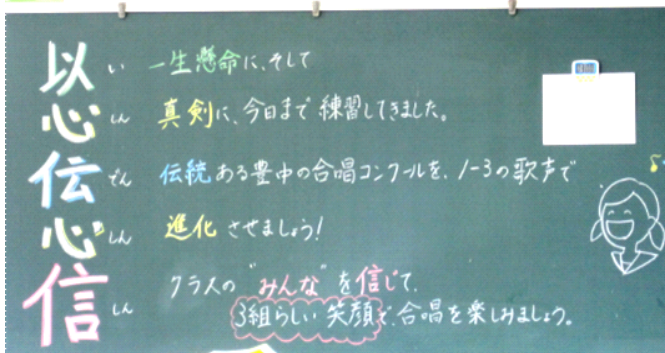 以 い 一生懸命に、そして
心 しん 真剣に、今日まで練習してきました。
伝 でん 伝統ある豊中の合唱コンクールを、1-3の歌声で
心 しん 進化させましょう!
信 しん クラスの"みんな"を信じて、
3組らしい笑顔で、合唱を楽しみましょう。